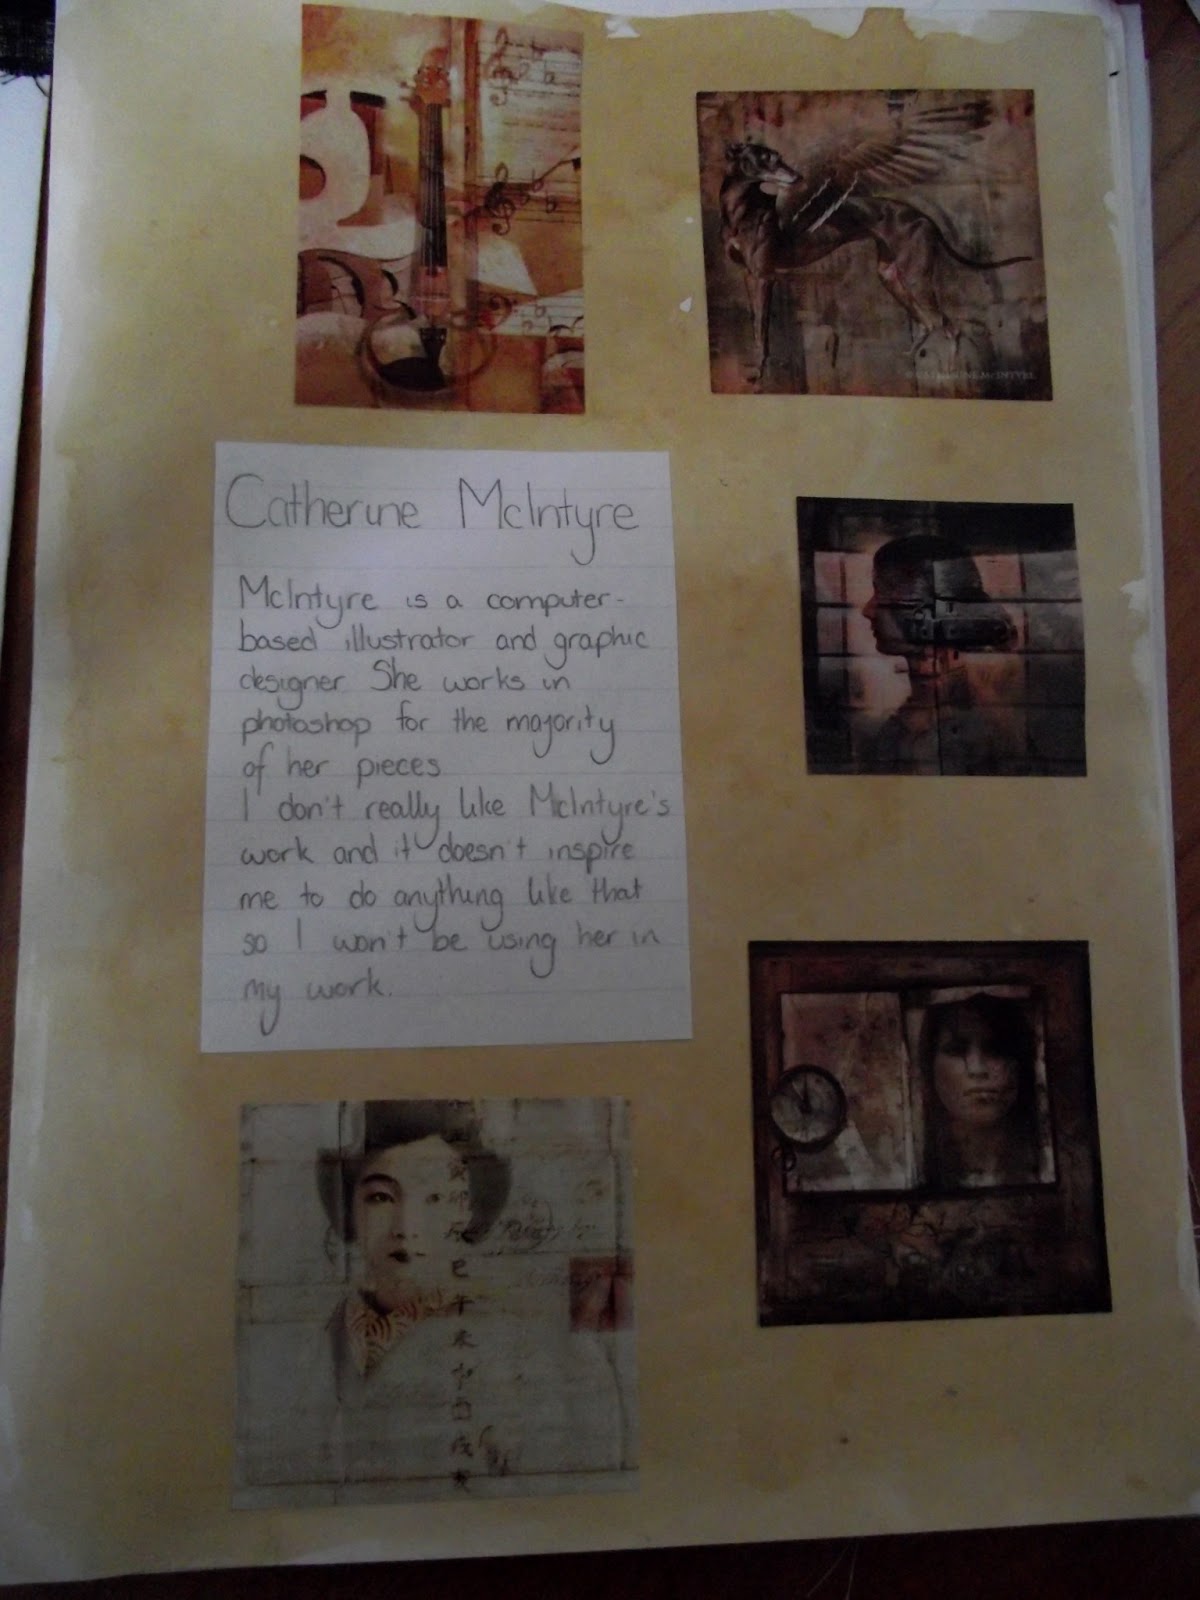 © CATHERINE McINTYRE
Catherine McIntyre
McIntyre is a computer-
based illustrator and graphic
designer. She works in
photoshop for the majority
of her pieces
I don't really like McIntyre's
work and it doesn't inspire
me to do anything like that
so I won't be using her in
my work.
巳
午
未